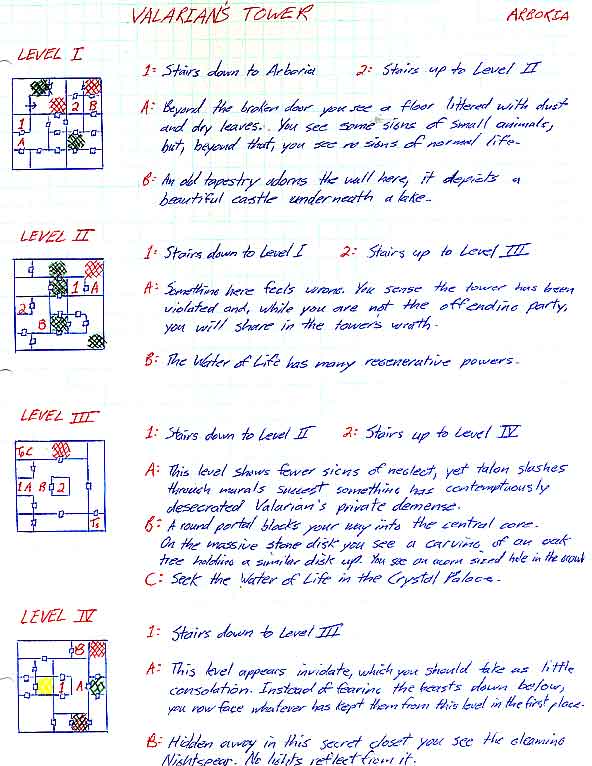 VALARIAN'S TOWER
ARBORIA
LEVEL I
1: Stairs down to Arboria 2: Stairs up to Level II
A: Beyond the broken door you see a floor littered with dust
and dry leaves. You see some signs of small animals,
but, beyond that, you see no signs of normal life.
B: An old tapestry adorns the wall here, it depicts a
beautiful castle underneath a lake.
2 B
1
A
LEVEL II
1: Stairs down to Level I 2: Stairs up to Level III
A: Something here feels wrong. You sense the tower has been
violated and, while you are not the offending party,
you will share in the tower's wrath.
B: The Water of Life has many regenerative powers.
1 A
2
B
LEVEL III
1: Stairs down to Level II 2: Stairs up to Level IV
A: This level shows fewer signs of neglect, yet talon slashes
through murals suggest something has contemptuously
desecrated Valarian's private demense.
B: A round portal blocks your way into the central core.
On the massive stone disk you see a carving of an oak
tree holding a similar disk up. You see an acorn sized hole in the
C: Seek the Water of Life in the Crystal Palace.
C
1 A B 2
LEVEL IV
1: Stairs down to Level III
A: This level appears inviolate, which you should take as little
consolation. Instead of fearing the beasts down below,
you now face whatever has kept them from this level in the first place.
B: Hidden away in this secret closet you see the gleaming
Nightspear. No lights reflect from it.
B
1 A